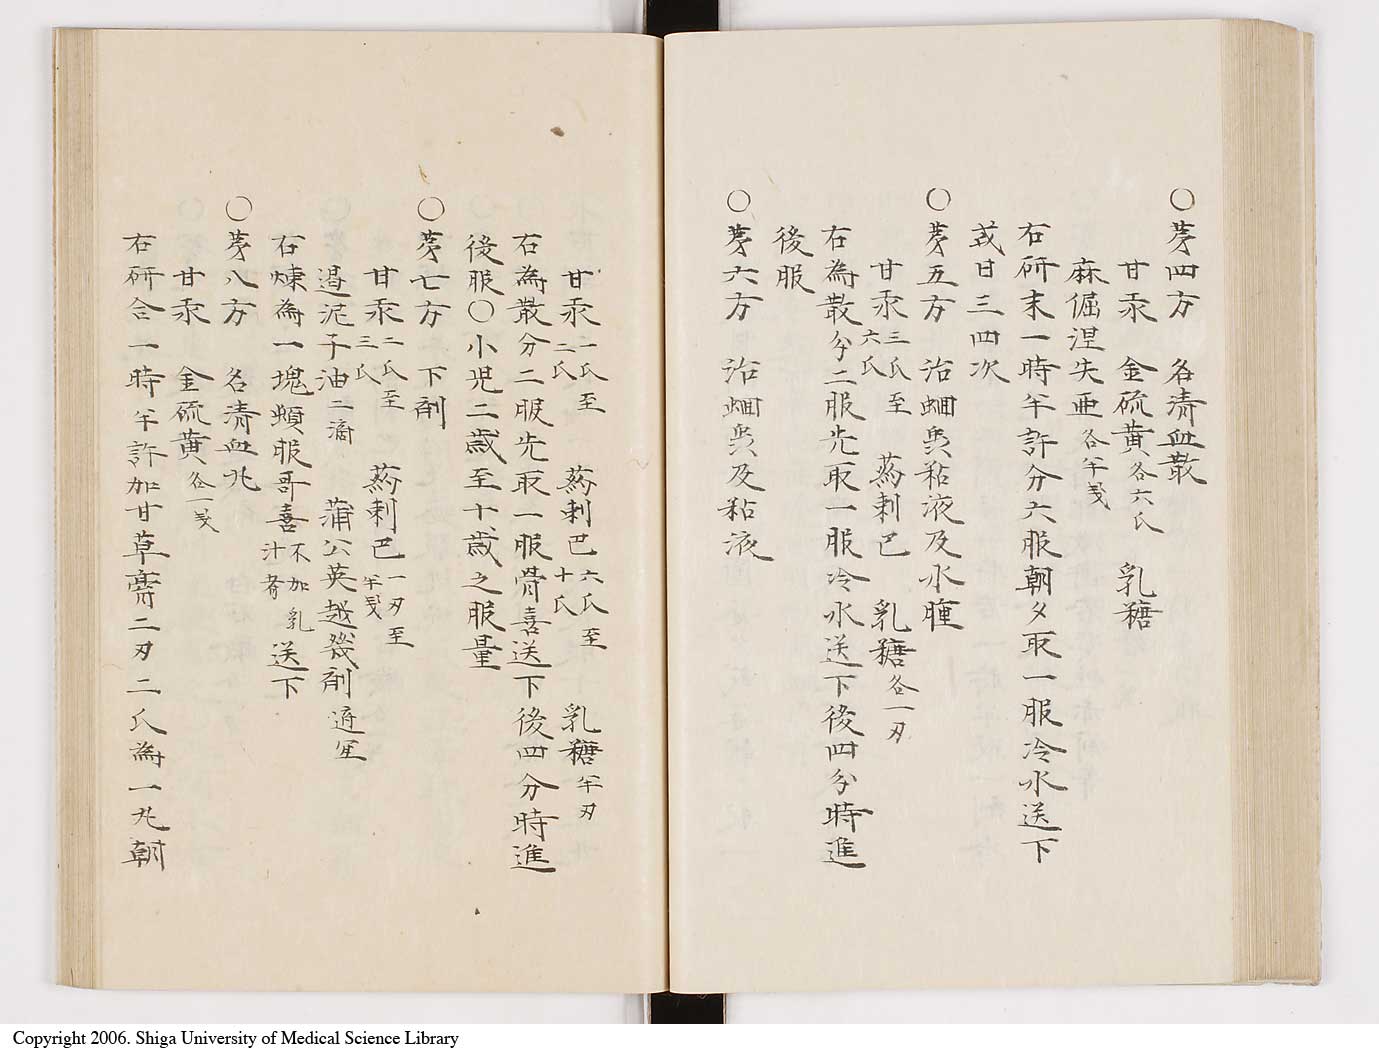 ○茅四方　名清血散
甘汞　金硫黄各六氏　乳糖
麻倔涅失亜各半戔
右研末一時半許分六服朝夕取一服冷水送下
或日三四次
○茅五方　治蛔虫粘液及水腫
甘汞三氏至六氏　葯剌巴　乳糖各一刃
右為散分二服先取一服冷水送下後四分時進
後服
○茅六方　治蛔虫及粘液
甘汞一氏至二氏　葯剌巴六氏至十氏　乳糖半刃
右為散分二服先取一服骨喜送下後四分時進
後服○小児二歳至十歳之服量
○茅七方　下剤
甘汞二氏至三氏　葯剌巴一刃至半戔
過泥子油二滴　蒲公英越幾剤適宜
右煉為一塊頓服哥喜不加乳汁者送下
○茅八方　名清血丸
甘汞　金硫黄各一戔
右研合一時半許加甘草膏二刃二氏為一丸朝
Copyright 2006. Shiga University of Medical Science Library